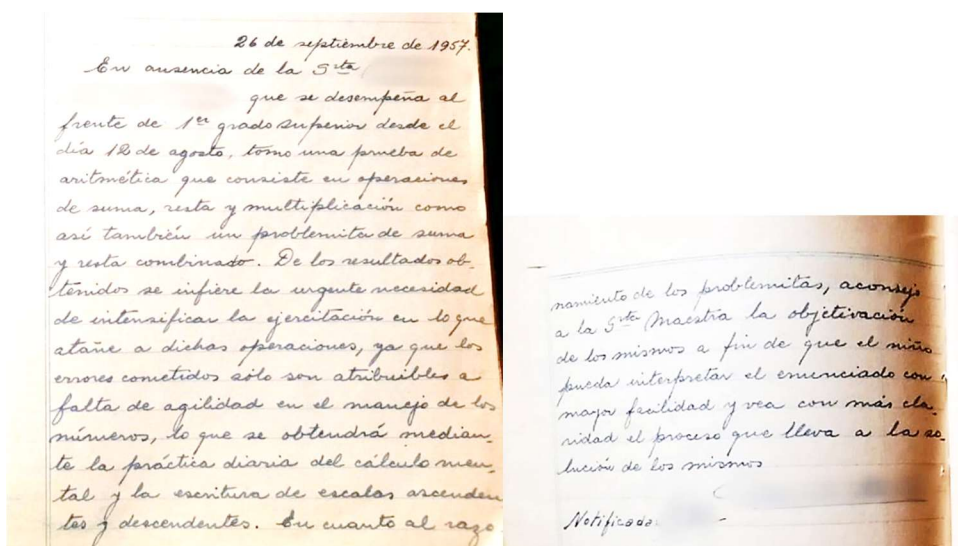 26 de septiembre de 1957.
En ausencia de la Srta
que se desempeña al
frente de 1er grado superior desde el
día 12 de agosto, tomo una prueba de
aritmética que consiste en operaciones
de suma, resta y multiplicación como
así también un problemita de suma
y resta combinado. De los resultados ob-
tenidos se infiere la urgente necesidad
de intensificar la ejercitación en lo que
atañe a dichas operaciones, ya que los
errores cometidos sólo son atribuibles a
falta de agilidad en el manejo de los
números, lo que se obtendrá median-
te la práctica diaria del cálculo men-
tal y la escritura de escalas ascenden
tes y descendentes. En cuanto al razo
namiento de los problemitas, aconsejo
a la Srta Maestra la objetivación
de los mismos a fin de que el niño
pueda interpretar el enunciado con
mayor facilidad y vea con más cla-
ridad el proceso que lleva a la so-
lución de los mismos
Notificada: